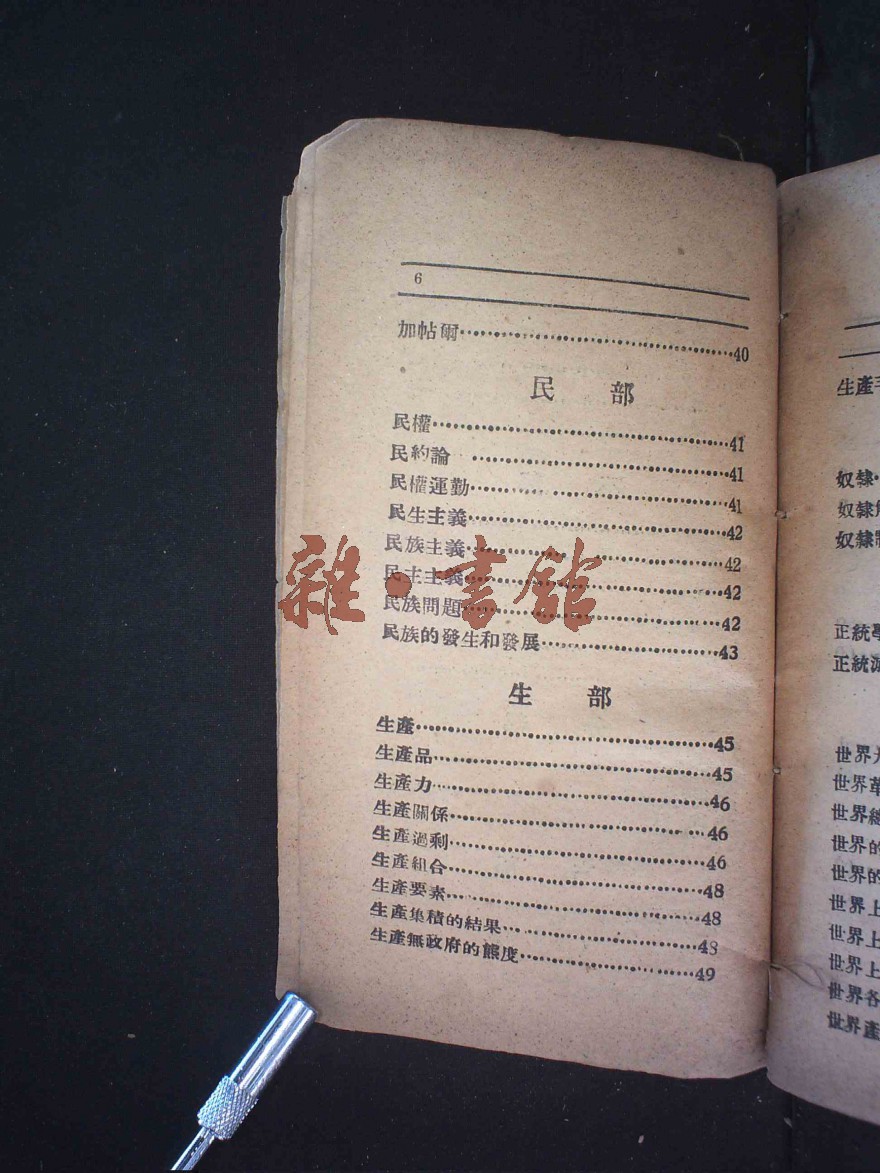 6
加帖爾……40
民 部
民權……41
民約論……41
民權運動……41
民生主義……42
民族主義……42
民主主義……42
民族問題……42
民族的發生和發展……43
生 部
生產……45
生產品……45
生產力……46
生產關係……46
生產過剩……46
生產組合……48
生產要素……48
生產集積的結果……48
生產無政府的態度……49
雜·書館
生產
奴隸
奴隸
奴隸
正統學
正統派
世界
世界革
世界總
世界的
世界的
世界上
世界上
世界上
世界各
世界產